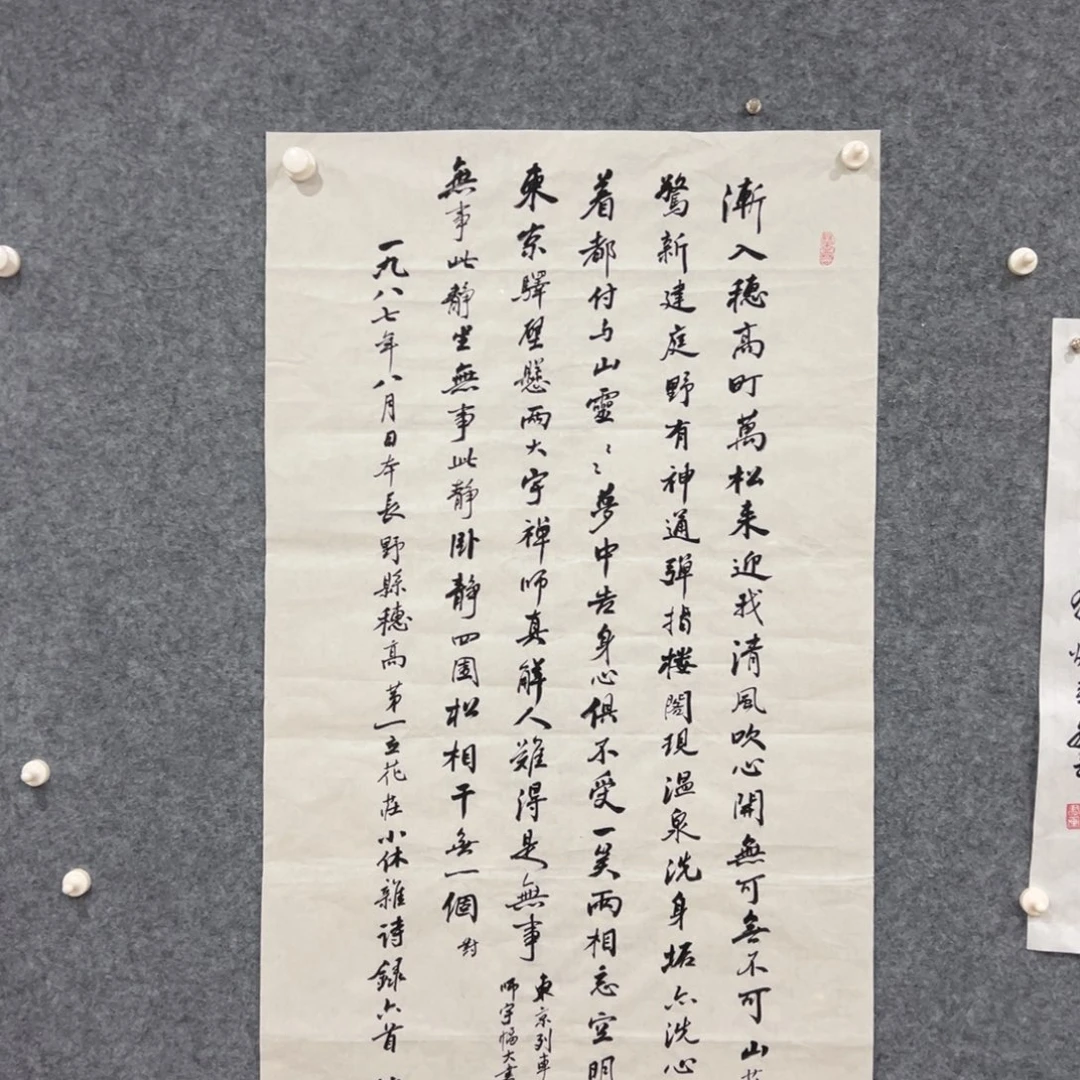 漸入穗高町萬松来迎我清風吹心開無可無不可山
驚新建庭野有神通彈指楼閣現温泉洗身垢亦洗心
着都付与山靈〻夢中告身心俱不受一笑兩相忘空明
東京驛壁懸两大字禅師真解人難得是無事
東京列車
師字幅大書
無事此静坐無事此静卧静四围松相干無一個
對
一九八七年八月日本長野縣穗高第一立花莊小休雜诗録六首